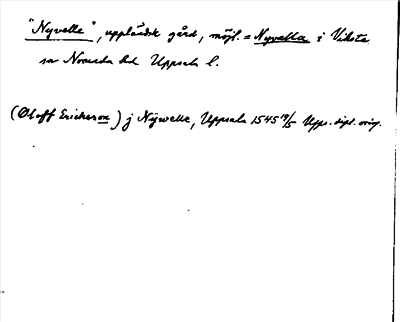 "Nyvelle", uppländsk gård, möjl. = Nyvalla i Viksta
sn Norunda hd Uppsala l.
(Øloff Erickson) j Nÿwelle, Uppsala 1545 19/5 Upps. dipl. orig.